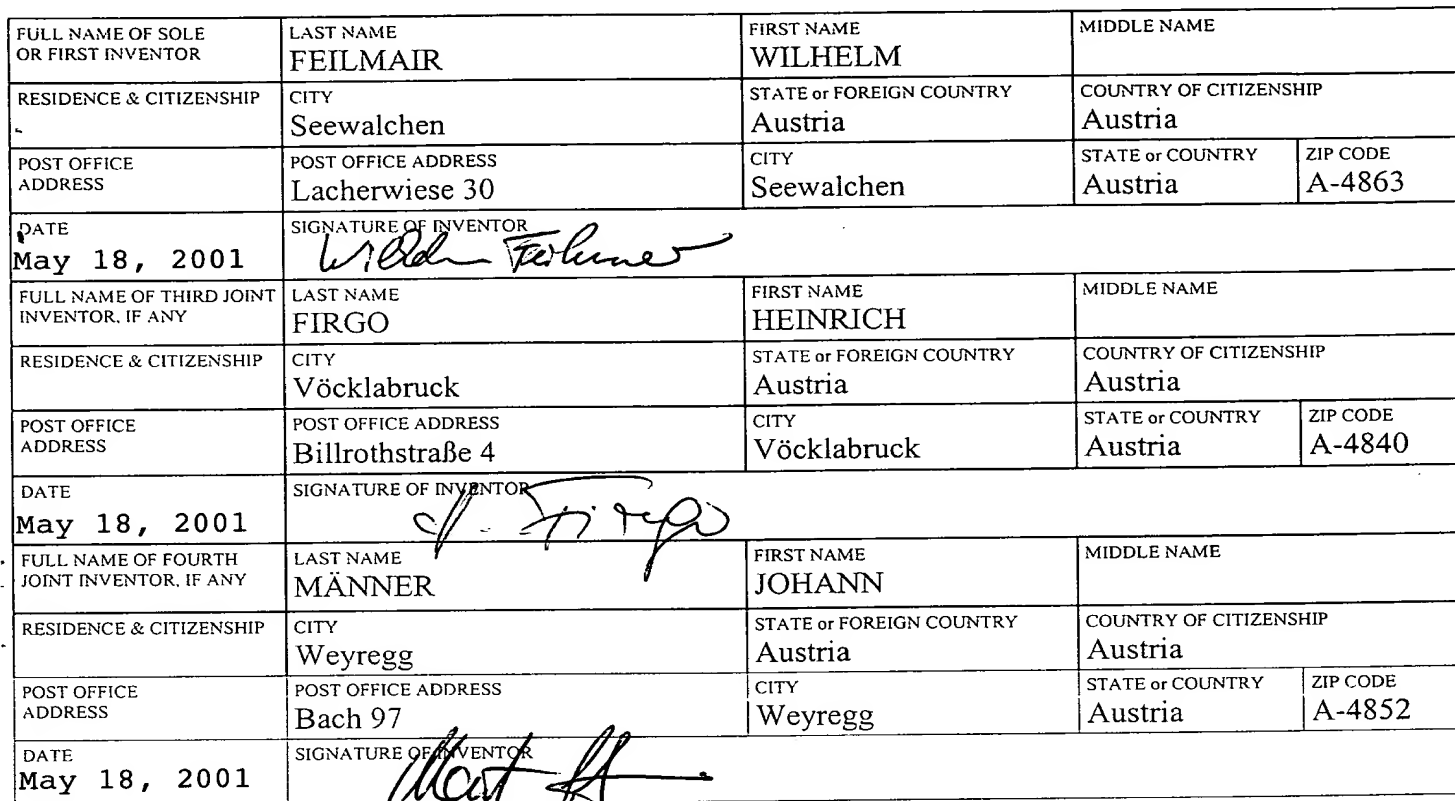 FULL NAME OF SOLE
OR FIRST INVENTOR
LAST NAME
FEILMAIR
FIRST NAME
WILHELM
MIDDLE NAME
RESIDENCE & CITIZENSHIP
CITY
Seewalchen
STATE or FOREIGN COUNTRY
Austria
COUNTRY OF CITIZENSHIP
Austria
POST OFFICE
ADDRESS
POST OFFICE ADDRESS
Lacherwiese 30
CITY
Seewalchen
STATE or COUNTRY
Austria
ZIP CODE
A-4863
DATE
May 18, 2001
SIGNATURE OF INVENTOR
FULL NAME OF THIRD JOINT
INVENTOR, IF ANY
LAST NAME
FIRGO
FIRST NAME
HEINRICH
MIDDLE NAME
RESIDENCE & CITIZENSHIP
CITY
Vöcklabruck
STATE or FOREIGN COUNTRY
Austria
COUNTRY OF CITIZENSHIP
Austria
POST OFFICE
ADDRESS
POST OFFICE ADDRESS
Billrothstraße 4
CITY
Vöcklabruck
STATE or COUNTRY
Austria
ZIP CODE
A-4840
DATE
May 18, 2001
SIGNATURE OF INVENTOR
Firgo
FULL NAME OF FOURTH
JOINT INVENTOR, IF ANY
LAST NAME
MÄNNER
FIRST NAME
JOHANN
MIDDLE NAME
RESIDENCE & CITIZENSHIP
CITY
Weyregg
STATE or FOREIGN COUNTRY
Austria
COUNTRY OF CITIZENSHIP
Austria
POST OFFICE
ADDRESS
POST OFFICE ADDRESS
Bach 97
CITY
Weyregg
STATE or COUNTRY
Austria
ZIP CODE
A-4852
DATE
May 18, 2001
SIGNATURE OF INVENTOR